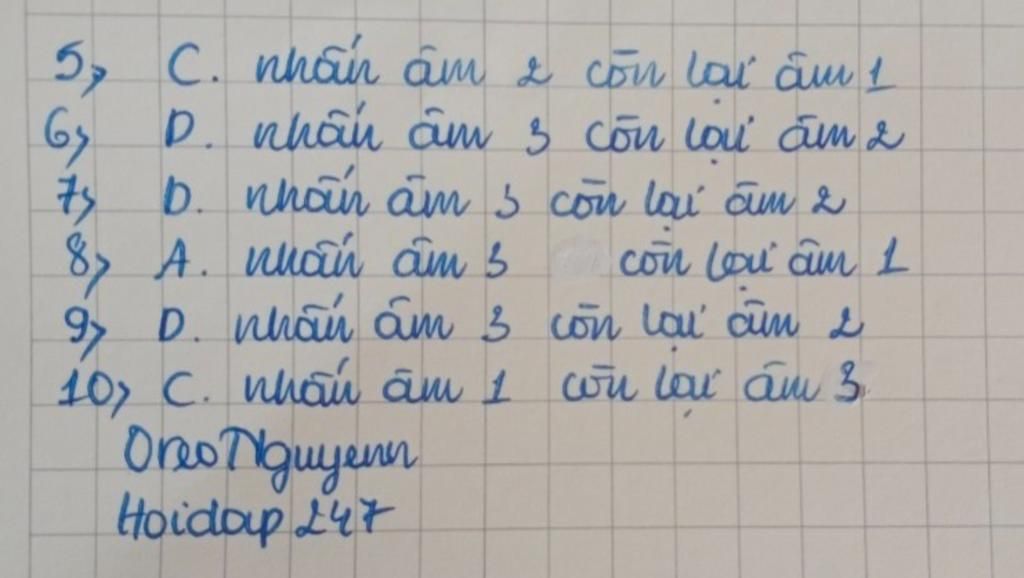 5, C. nhấn âm 2 còn lại âm 1
6, D. nhấn âm 3 còn lại âm 2
7, D. nhấn âm 3 còn lại âm 2
8, A. nhấn âm 3 còn lại âm 1
9, D. nhấn âm 3 còn lại âm 2
10, C. nhấn âm 1 còn lại âm 3
OreoNguyenn
Hoidap 247